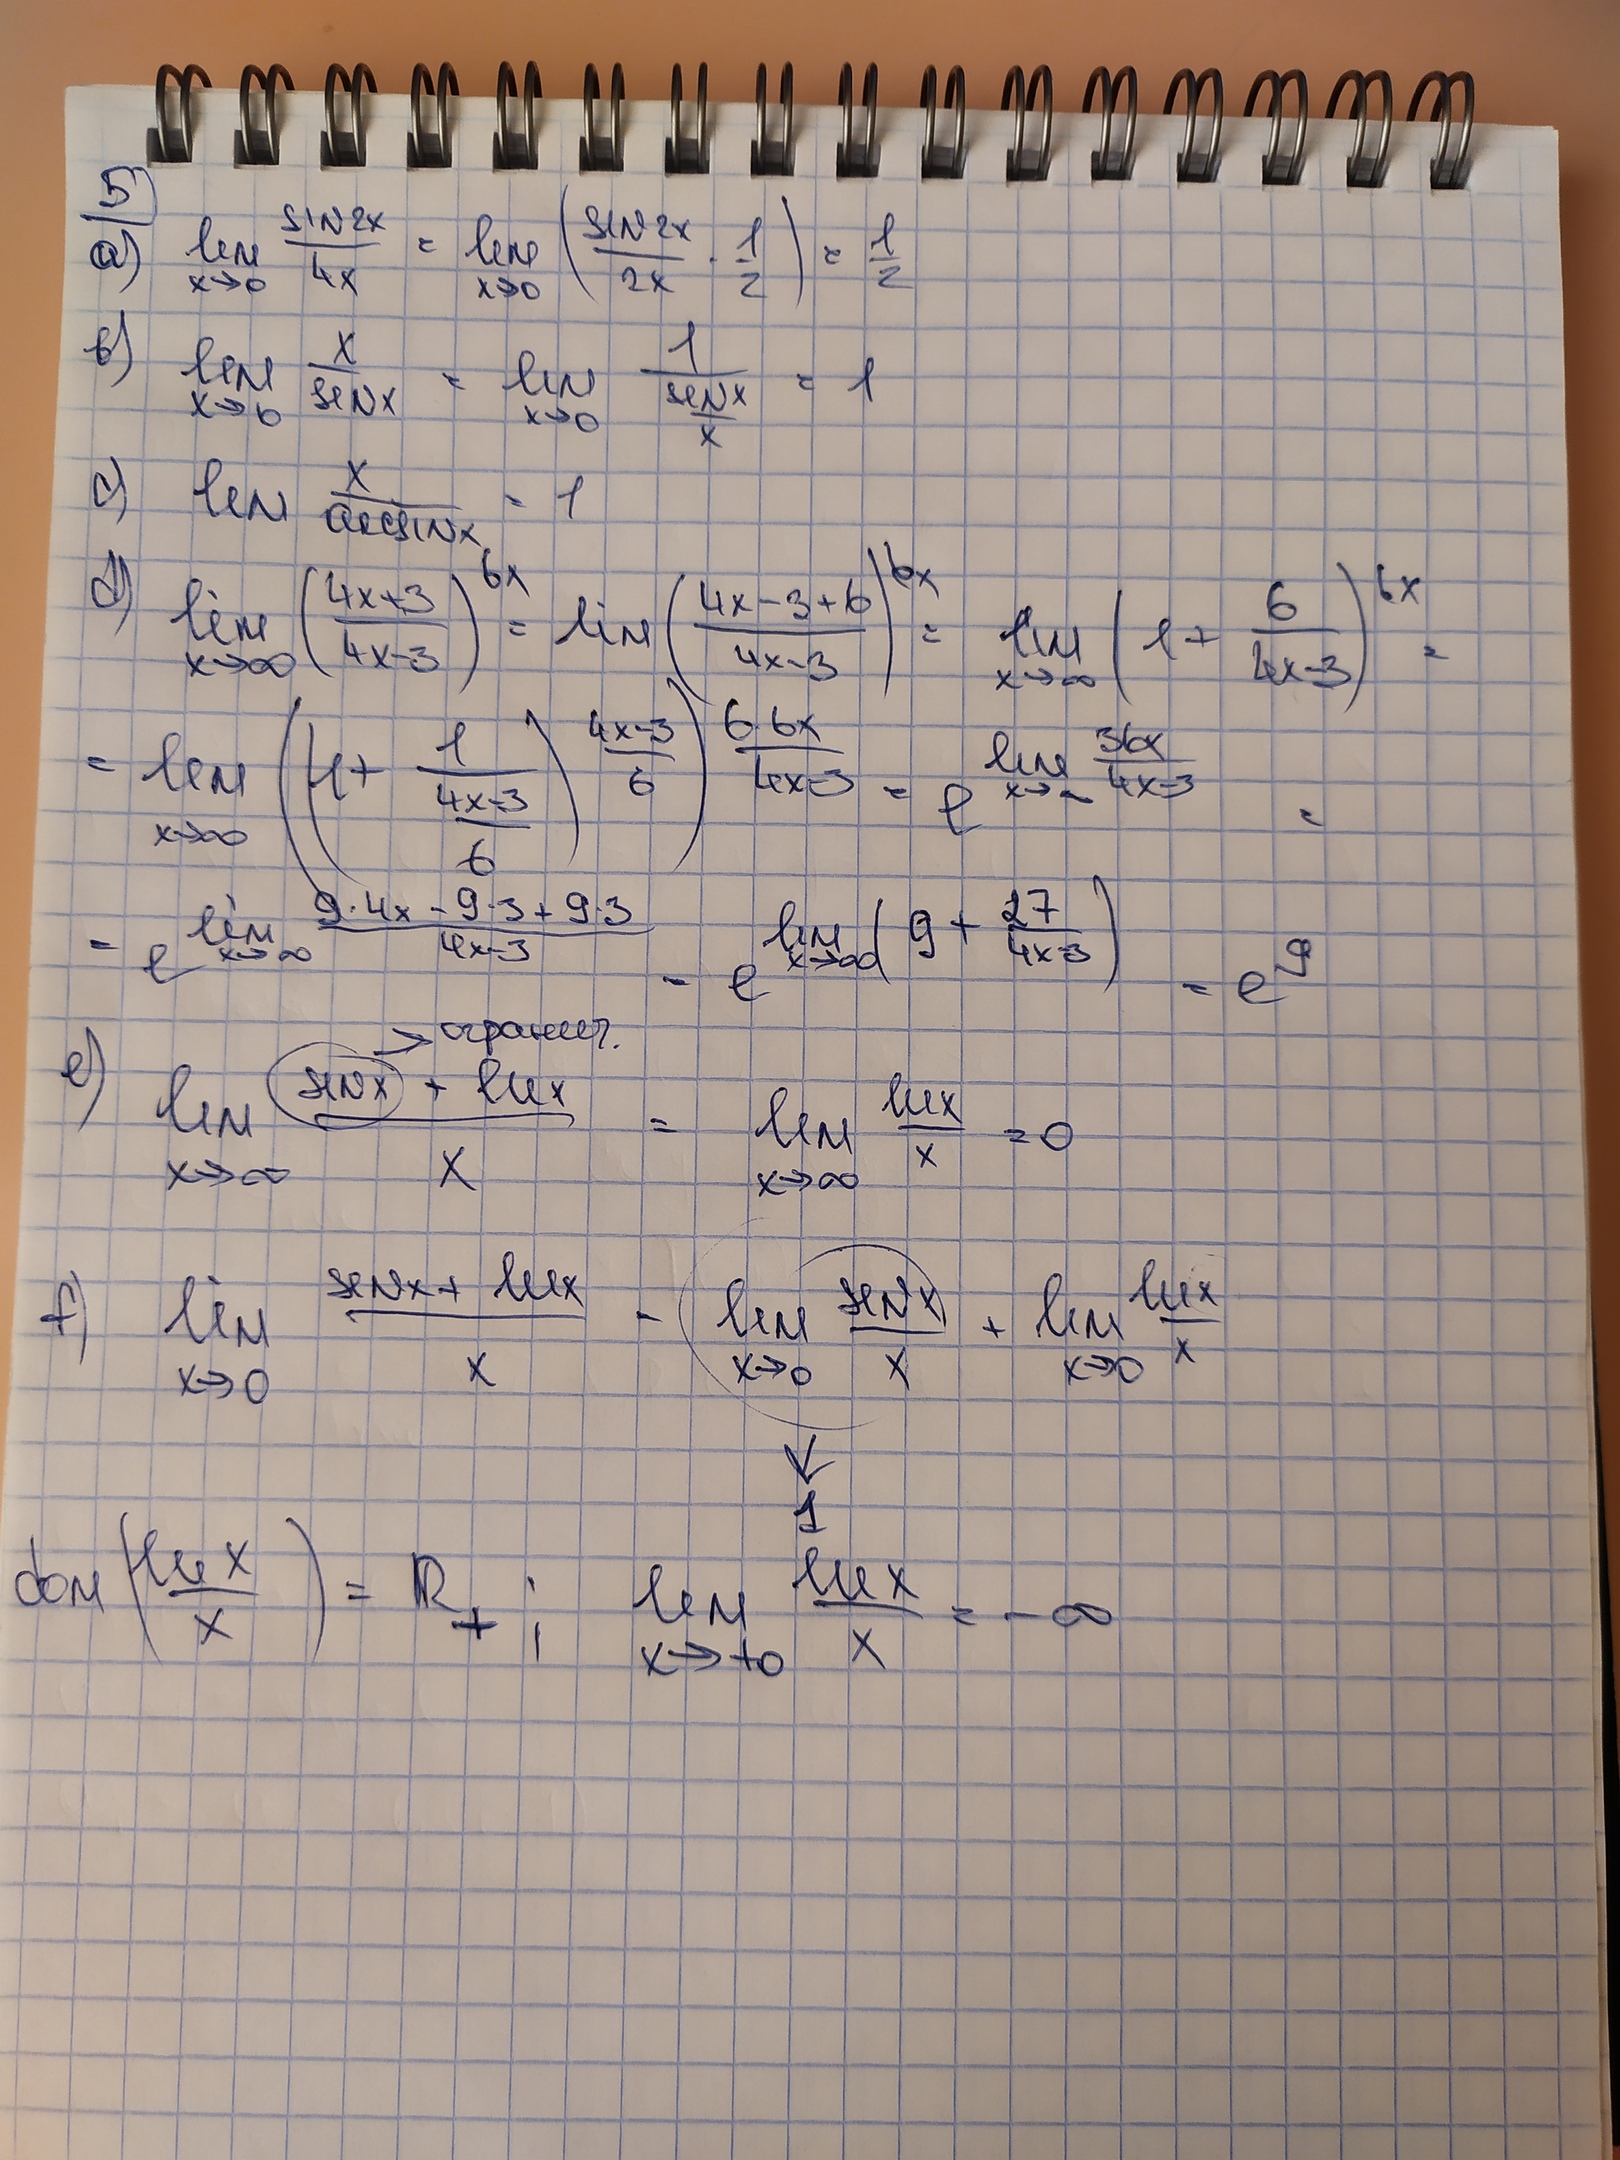 5)
a) lim x→0 sin2x/4x = lim x→0 (sin2x/2x · 1/2) = 1/2
b) lim x→0 x/sinx = lim x→0 1/(sinx/x) = 1
c) lim x/arcsinx = 1
d) lim x→∞ ((4x+3)/(4x-3))^6x = lim ((4x-3+6)/(4x-3))^6x = lim x→∞ (1 + 6/(4x-3))^6x =
= lim x→∞ ((1 + 1/((4x-3)/6))^((4x-3)/6))^(6·6x/(4x-3)) = e^(lim x→∞ 36x/(4x-3)) =
= e^(lim x→∞ (9·4x - 9·3 + 9·3)/(4x-3)) = e^(lim x→∞ (9 + 27/(4x-3))) = e^9
→ огранич.
e) lim x→∞ (sinx + lnx)/x = lim x→∞ lnx/x = 0
f) lim x→0 (sinx + lnx)/x = lim x→0 sinx/x + lim x→0 lnx/x
↓
1
dom (lnx/x) = ℝ+ ; lim x→+0 lnx/x = -∞